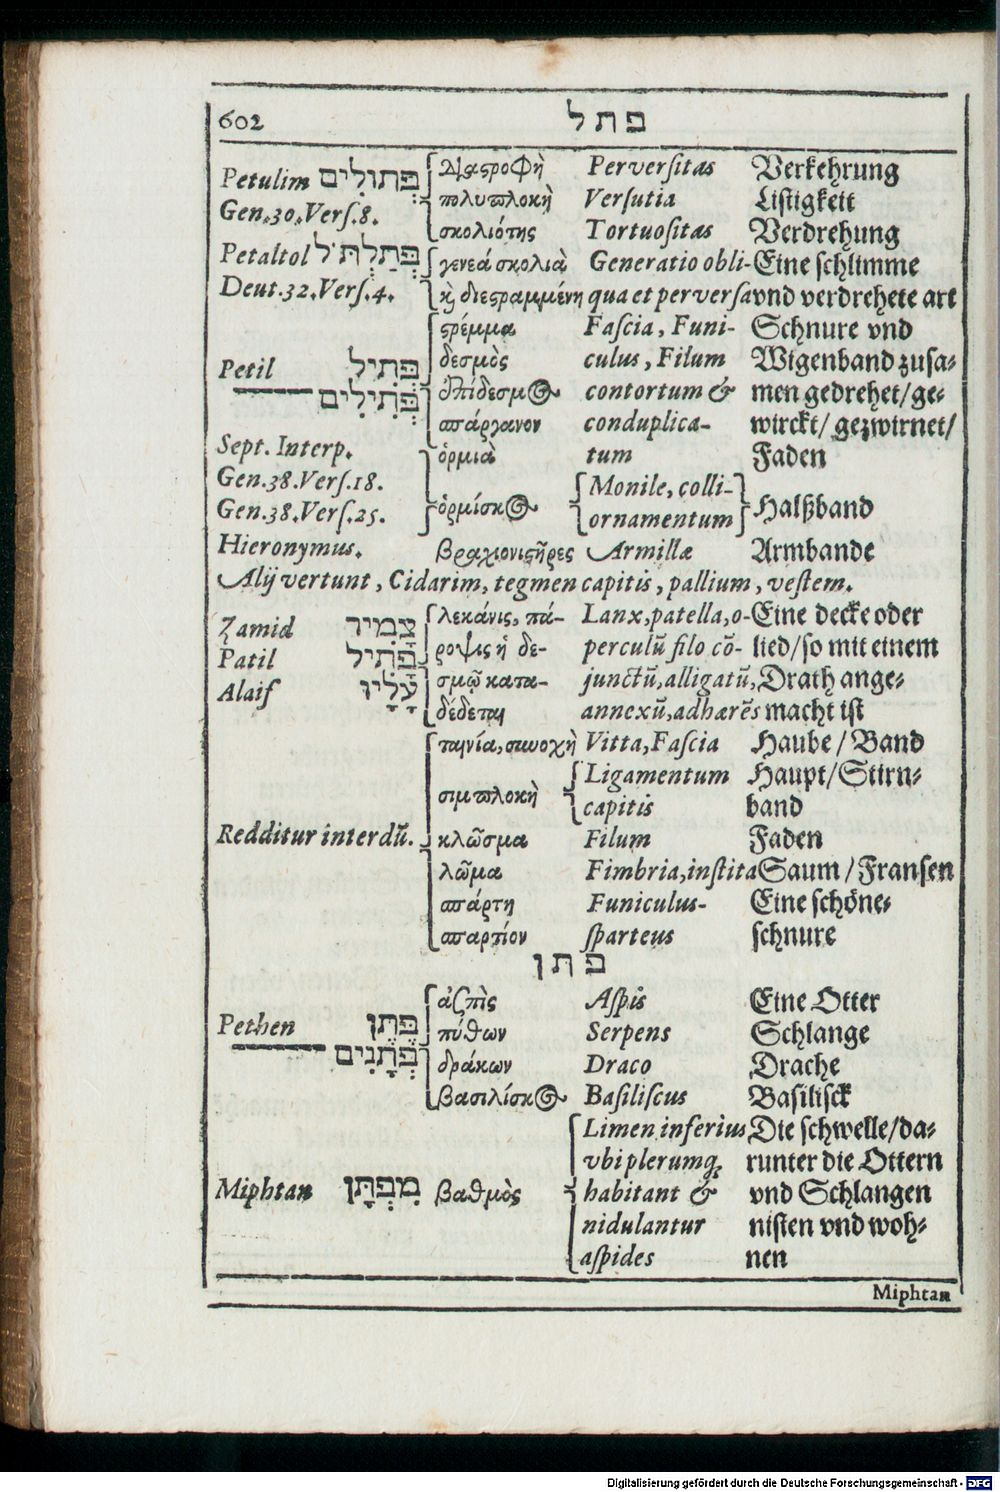 602 פתל
Petulim פְּתוּלִים διαστροφὴ Perversitas Verkehrung
Gen. 30. Vers. 8. πολυπλοκὴ Versutia Listigkeit
σκολιότης Tortuositas Verdrehung
Petaltol פְּתַלְתֹּל γενεά σκολιὰ Generatio obli- Eine schlimme
Deut. 32. Vers. 4. κ̀ διεστραμμένη qua et perversa vnd verdrehete art
στρέμμα Fascia, Funi- Schnure vnd
Petil פְּתִיל δεσμὸς culus, Filum Wigenband zusa-
פְּתִילִים ἐπίδεσμος contortum & men gedrehet/ ge-
σπάργανον conduplica- wirckt/ gezwirnet/
Sept. Interp. ὁρμιὰ tum Faden
Gen. 38. Vers. 18. Monile, colli-
Gen. 38. Vers. 25. ὁρμίσκος ornamentum Halßband
Hieronymus. βραχιονιστῆρες Armillæ Armbande
Alij vertunt, Cidarim, tegmen capitis, pallium, vestem.
Zamid צָמִיד λεκάνις, πά- Lanx, patella, o- Eine decke oder
Patil פָּתִיל ροψις ἡ δε- perculũ filo cõ- lied/ so mit einem
Alaif עָלָיו σμῷ κατα- junctũ, alligatũ, Drath ange-
δέδεται annexũ, adhærẽs macht ist
ταινία, συνοχὴ Vitta, Fascia Haube/ Band
Ligamentum Haupt/ Stirn-
σιμπλοκὴ capitis band
Redditur interdũ. κλῶσμα Filum Faden
λῶμα Fimbria, instita Saum/ Fransen
σπάρτη Funiculus- Eine schöne-
σπαρτίον sparteus schnure
פתן
ἀσπὶς Aspis Eine Otter
Pethen פֶּתֶן πύθων Serpens Schlange
פְּתָנִים δράκων Draco Drache
βασιλίσκος Basiliscus Basilisck
Limen inferius Die schwelle/ da-
vbi plerumq; runter die Ottern
Miphtan מִפְתָּן βαθμὸς habitant & vnd Schlangen
nidulantur nisten vnd woh-
aspides nen
Miphtan
Digitalisierung gefördert durch die Deutsche Forschungsgemeinschaft - DFG